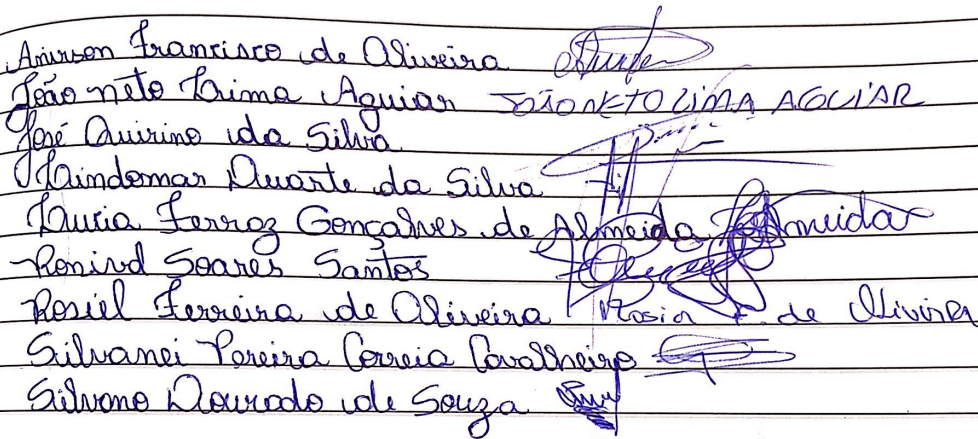 Anirson Francisco de Oliveira
João neto Lima Aguiar JOÃO NETO LIMA AGUIAR
José Quirino da Silva
Duarte da Silva
Lucia Ferraz Gonçalves de Almeida Almeida
Ronivd Soares Santos
Rosiel Ferreira de Oliveira Rosiel F. de Oliviera
Silvanei Pereira Correia Cavalheiro
Silvano Dourado de Souza